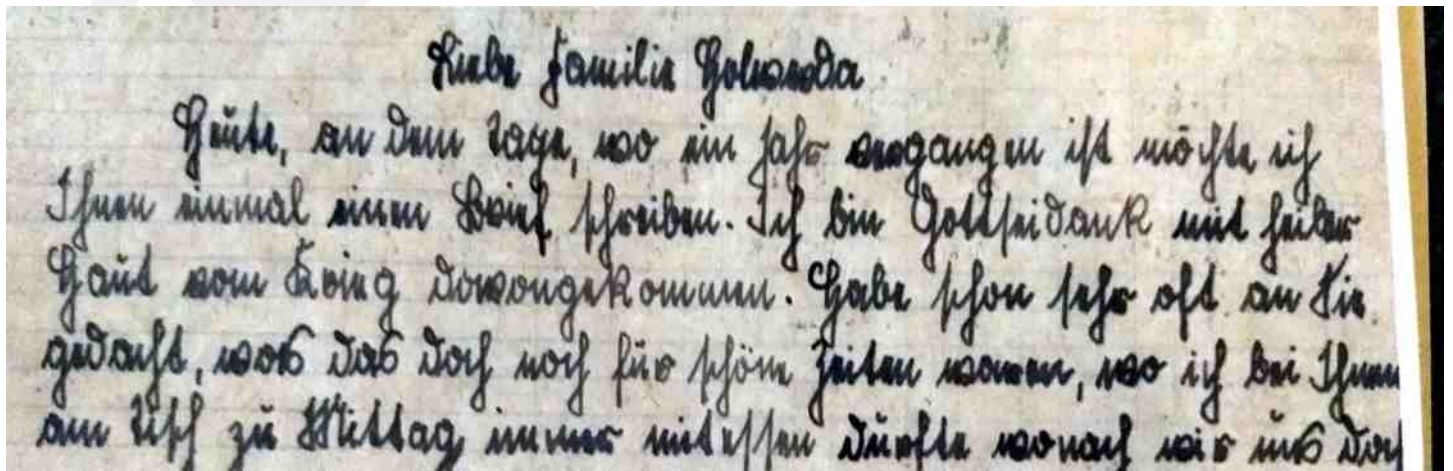 Liebe Familie Holwerda
Heute, an dem Tage, wo ein Jahr vergangen ist möchte ich
Ihnen einmal einen Brief schreiben. Ich bin Gottseidank mit heiler
Haut vom Krieg davongekommen. Habe schon sehr oft an Sie
gedacht, was das doch noch für schöne Zeiten waren, wo ich bei Ihnen
am Tisch zu Mittag immer mitessen durfte wonach wir uns doch